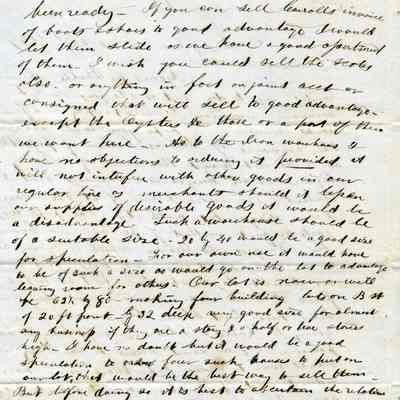 been ready — If you can sell Carrolls invoice
of boots & shoes to good advantage I would
let them slide as we have a good assortment
of them I wish you could sell the Scotts
also. or anything in fact on joint acct or
consigned that will sell to good advantage
except the Oysters & those or a part of them
we want here — As to the Iron warehouse I
have no objections to ordering it provided it
will not interfere with other goods in our
regular line as merchants should it lessen
our supplies of desirable goods it would be
a disadvantage Such a warehouse should be
of a suitable size. 20 by 40 would be a good size
for speculation — For our own use it would have
to be of such a size as would go on the lot to advantage
leaving room for others. Our lot is now or will
be 62½ by 80 making four building lots on B st
of 20 ft front by 32 deep very good size for almost
any business if they are a story & a half or two stories
high. I have no doubt but it would be a good
speculation to order four such houses to put on
our lot, that would be the best way to sell them.
But before doing so it is best to ascertain the relative